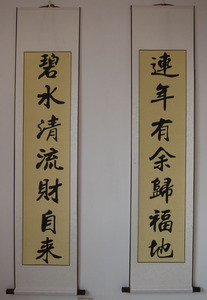 連年有余歸福地
碧水清流財自来